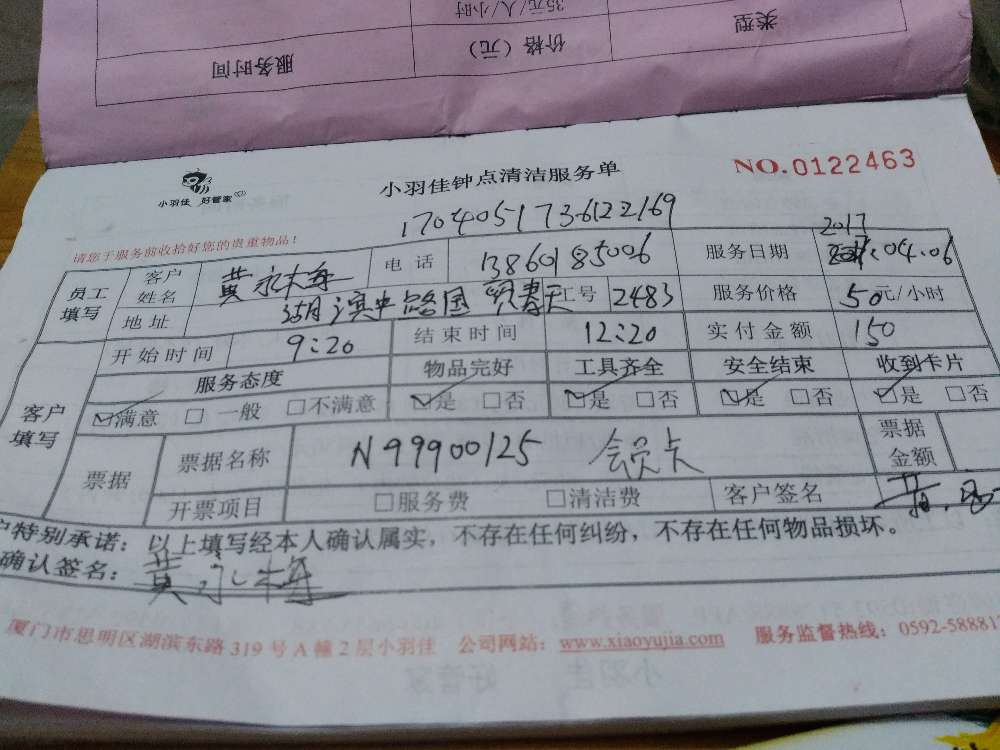 服务时间 价格（元） 类型
35元/人/小时
小羽佳 好管家
小羽佳钟点清洁服务单
NO.0122463
170405173-6122169
请您于服务前收拾好您的贵重物品！
员工填写 客户姓名 黄永梅 电话 13860185006 服务日期 2017.04.06
地址 工号 2483 服务价格 50元/小时
客户填写 开始时间 9:20 结束时间 12:20 实付金额 150
服务态度 物品完好 工具齐全 安全结束 收到卡片
☑满意 □一般 □不满意 ☑是 □否 ☑是 □否 ☑是 □否 ☑是 □否
票据 票据名称 N99900125 会员卡 票据金额
开票项目 □服务费 □清洁费 客户签名
户特别承诺：以上填写经本人确认属实，不存在任何纠纷，不存在任何物品损坏。
确认签名：黄永梅
厦门市思明区湖滨东路319号A幢2层小羽佳 公司网站：www.xiaoyujia.com 服务监督热线：0592-588817